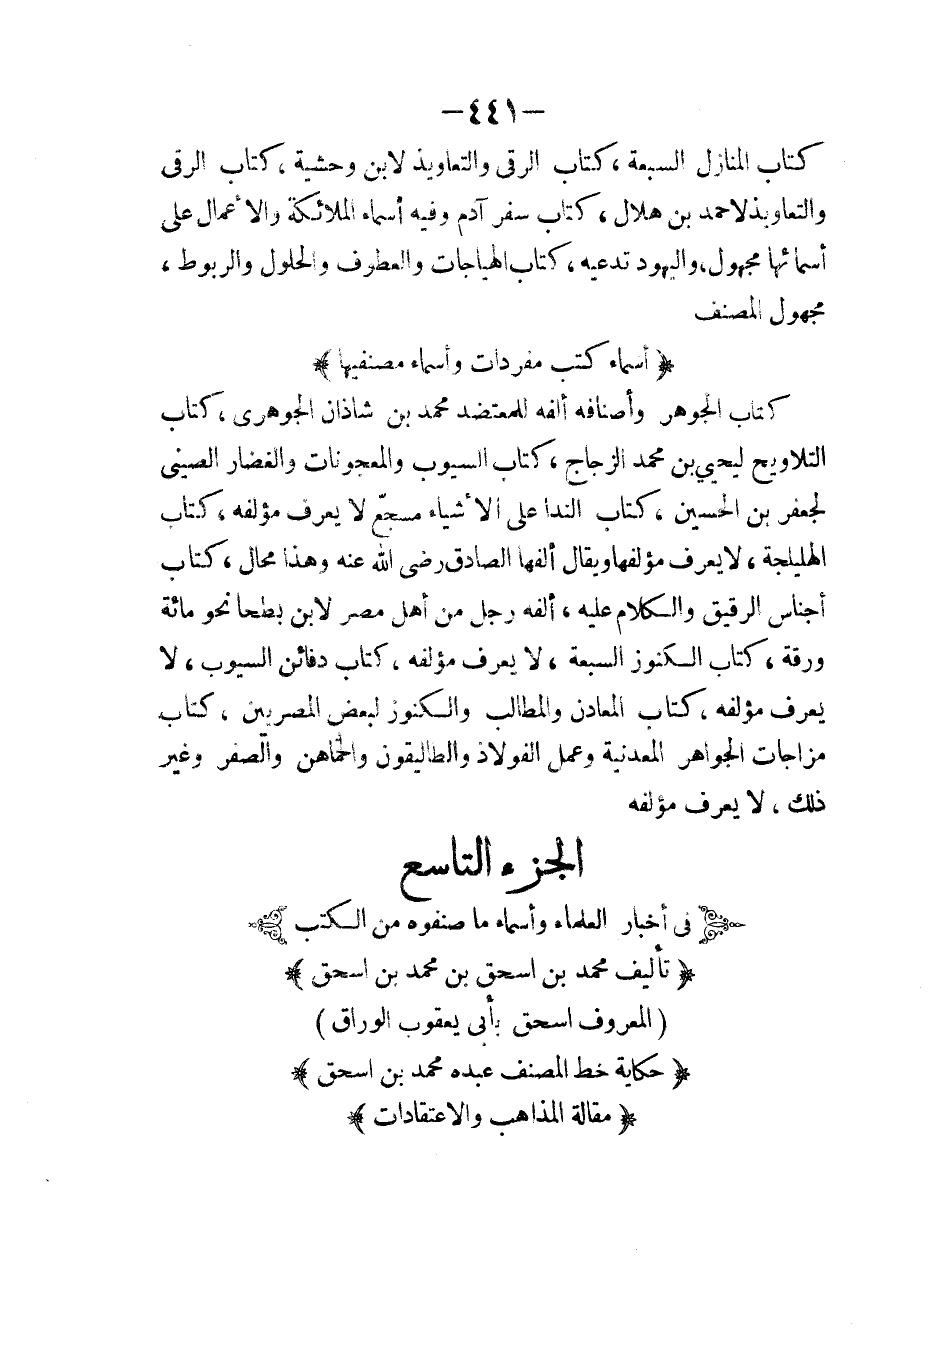 —٤٤١—
كتاب المنازل السبعة ، كتاب الرقى والتعاويذ لابن وحشية ، كتاب الرقى
والتعاويذ لاحمد بن هلال ، كتاب سفر آدم وفيه أسماء الملائكة والاعمال على
أسمائها مجهول، واليهود تدعيه ، كتاب الهياجات والعطوف والحلول والربوط ،
مجهول المصنف
﴿ أسماء كتب مفردات وأسماء مصنفيها ﴾
كتاب الجوهر وأصنافه ألفه للمعتضد محمد بن شاذان الجوهرى ، كتاب
التلاويح ليحيى بن محمد الزجاج ، كتاب السيوب والمعجونات والغضار الصينى
لجعفر بن الحسين ، كتاب الندا على الاشياء مسجّع لا يعرف مؤلفه ، كتاب
الهليلجة ، لا يعرف مؤلفها ويقال ألفها الصادق رضى الله عنه وهذا محال ، كتاب
أجناس الرقيق والكلام عليه ، ألفه رجل من أهل مصر لابن بطحا نحو مائة
ورقة ، كتاب الكنوز السبعة ، لا يعرف مؤلفه ، كتاب دفائن السيوب ، لا
يعرف مؤلفه ، كتاب المعادن والمطالب والكنوز لبعض المصريين ، كتاب
مزاجات الجواهر المعدنية وعمل الفولاذ والطاليقون والخماهن والصّفر وغير
ذلك ، لا يعرف مؤلفه
الجزء التاسع
فى أخبار العلماء وأسماء ما صنفوه من الكتب
﴿ تأليف محمد بن اسحق بن محمد بن اسحق ﴾
( المعروف اسحق بأبى يعقوب الوراق )
﴿ حكاية خط المصنف عبده محمد بن اسحق ﴾
﴿ مقالة المذاهب والاعتقادات ﴾